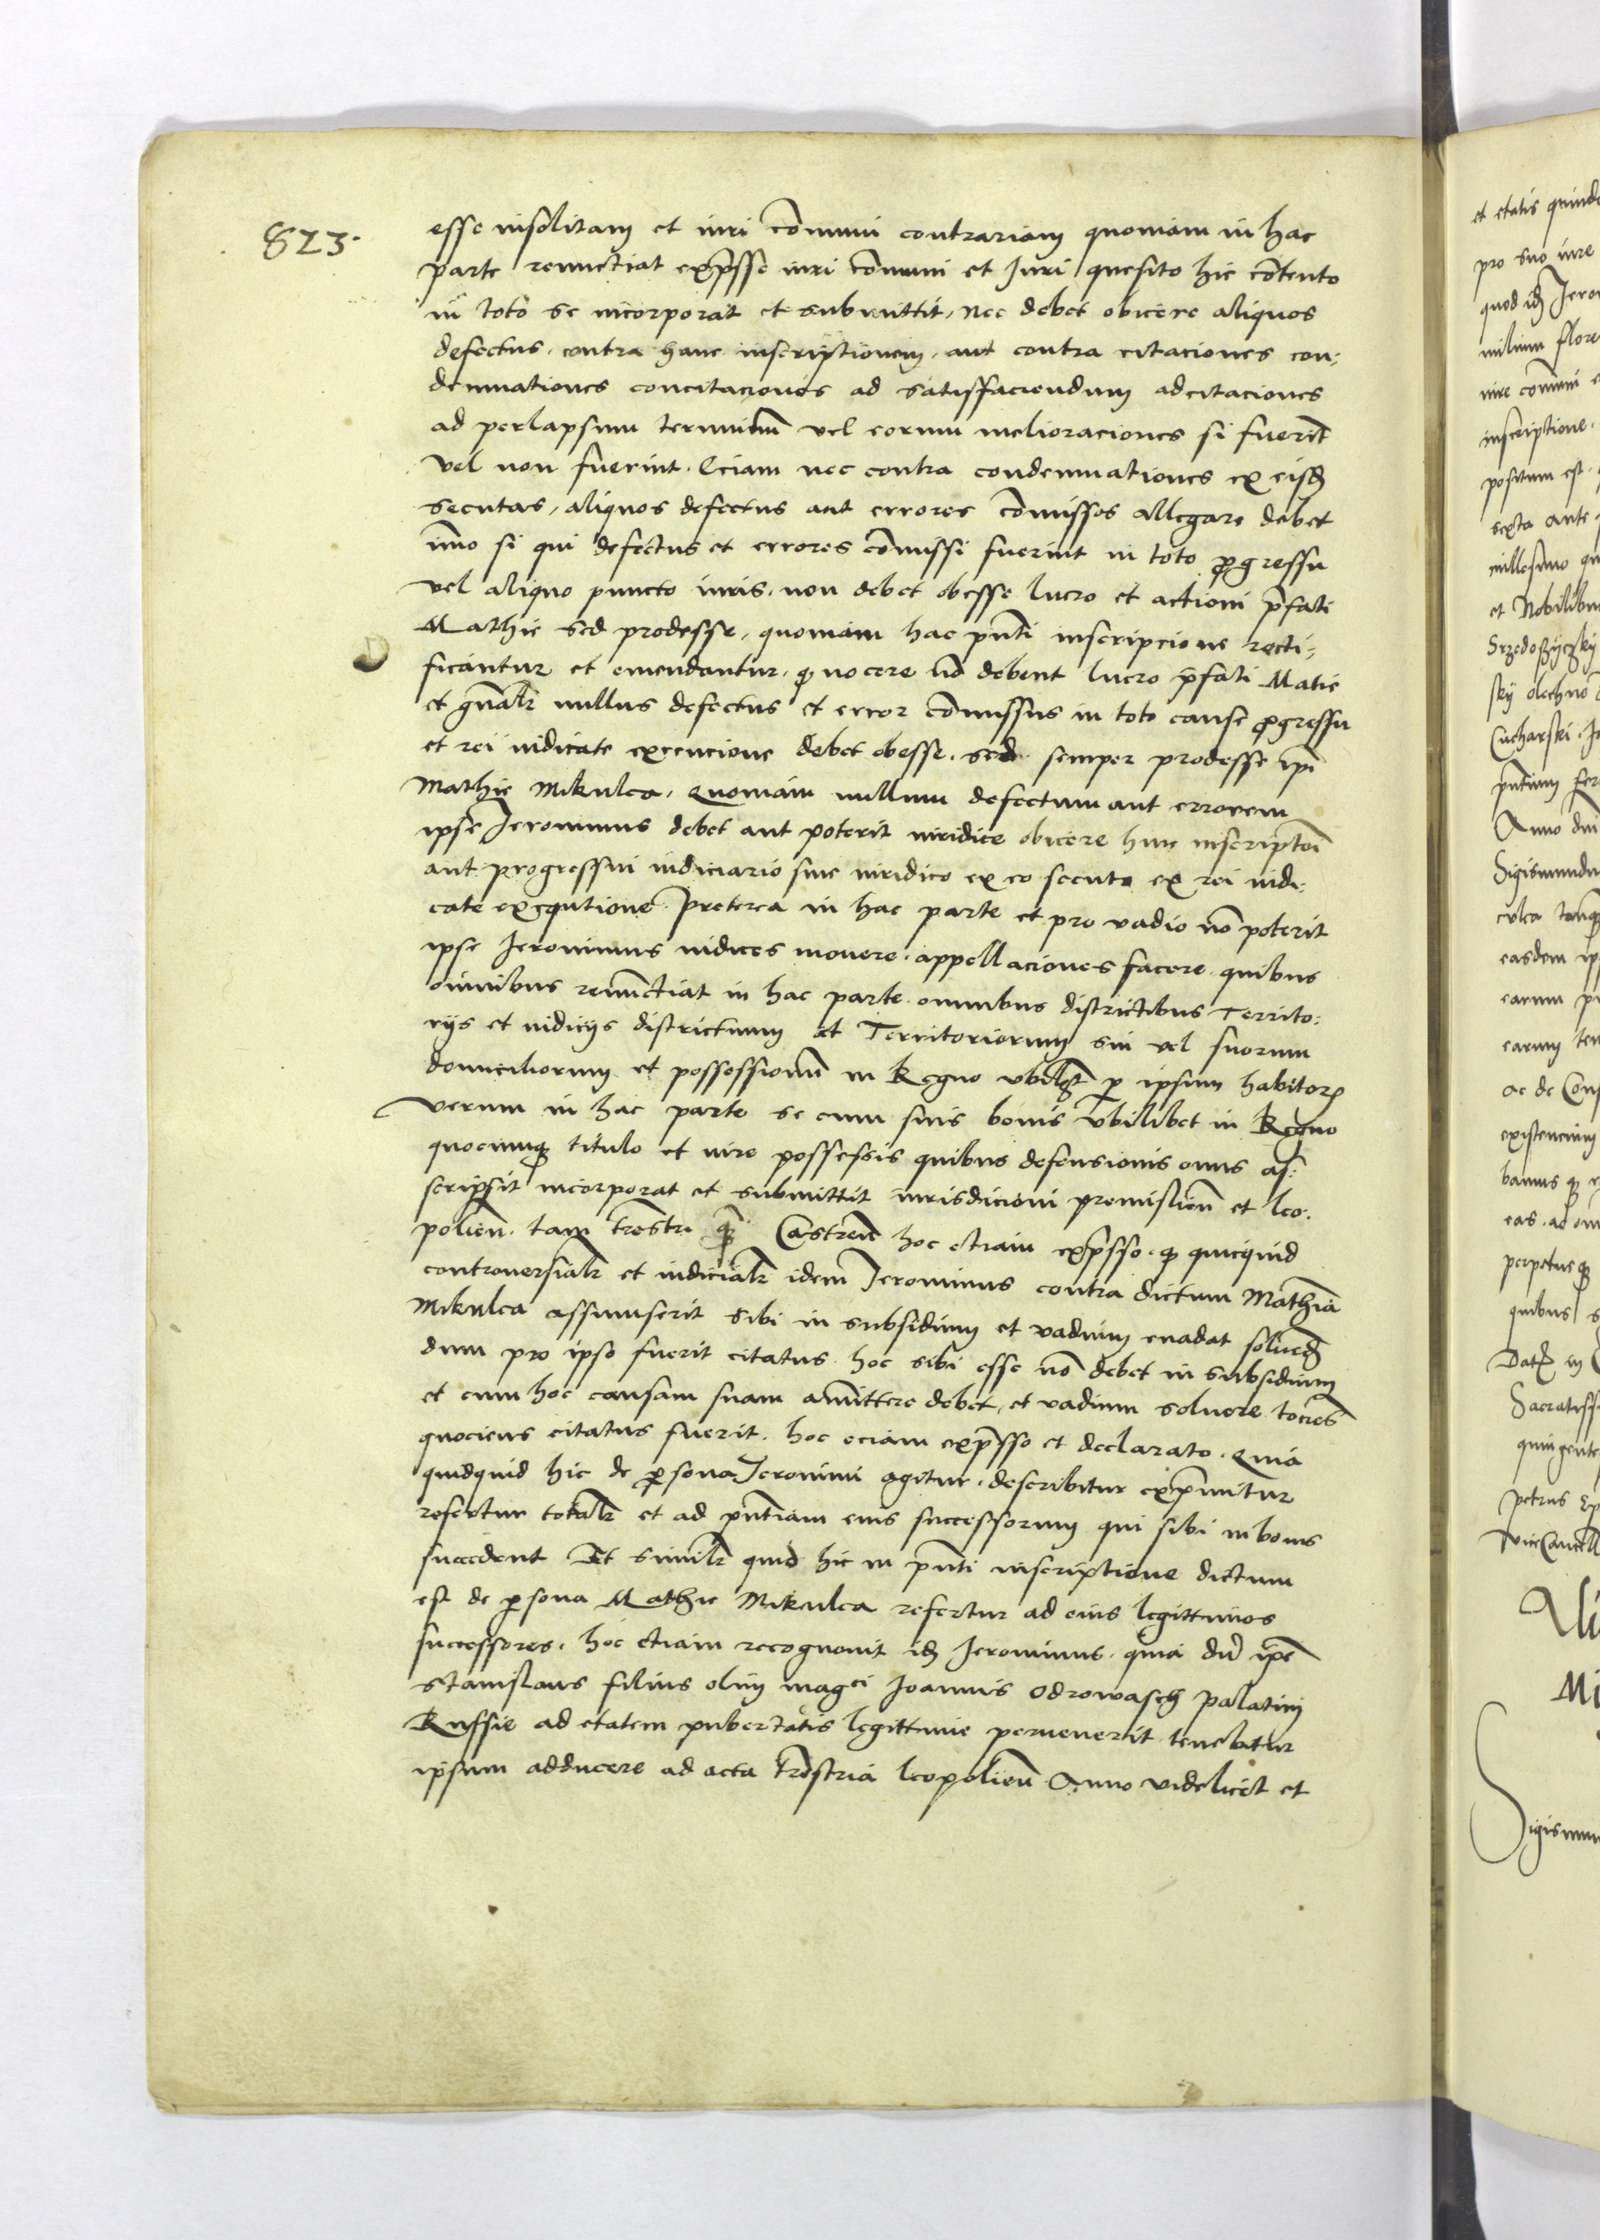 823.
esse insolitam et iuri cōmuni contrariam quoniam in hac
parte renunctiat exp̄sse iuri cōmuni et Iuri quesito hic cōtento
in toto se incorporat et submittit, nec debet obicere aliquos
defectus, contra hanc inscriptionem, aut contra citaciones con:
demnationes concitaciones ad satisfaciendum adcitaciones
ad perlapsum terminum vel eorum melioraciones si fuerīt
vel non fuerint. Eciam nec contra condemnationes ex eisd
secutas, aliquos defectus aut errores cōmissos allegare debet
imo si qui defectus et errores cōmissi fuerint in toto ꝓgressu
vel aliquo puncto iuris, non debet obesse lucro et actioni p̄fati
Mathie sed prodesse, quoniam hac pn̄ti inscripcione recti,
ficantur et emendantur, ꝙ nocere nō debent lucro p̄fati Matie
et gn̄alr nullus defectus et error cōmissus in toto cause ꝓgressu
et rei iudicate execucione debet obesse. sed semper prodesse ipī
Mathie Mikulca, quoniam nullum defectum aut errorem
ipse Jeronimus debet aut poterit iuridice obicere huic inscriptōi
aut progressui iudiciario siue iuridico ex eo secuto ex rei iudi,
cate exequtione. Preterea in hac parte et pro vadio nō poterit
ipse Jeronimus iudices mouere. appellaciones facere. quibus
omnibus renunctiat in hac parte. omnibus districtibus Territo:
rijs et iudicijs districtuum et Territoriorum sui vel suorum
domiciliorum et possessionū in Regno vbilibꝫ ꝑ ipsum habitoꝝ
verum in hac parte se cum suis bonis vbilibet in Regno
quocunqꝫ titulo et iure possessis quibus defensionis onus as:
scripsit incorporat et submittit iurisdicioni premislien̄ et leo.
polien̄. tam trēstri qꝫ Castren̄ hoc etiam exp̄sso. ꝙ quicquid
controuersialr et iudicialr idem Jeronimus contra dictum Mathiā
Mikulca assumserit sibi in subsidium et vadium euadat soluend
dum pro ipso fuerit citatus. hoc sibi esse nō debet in subsidium
et cum hoc causam suam amittere debet, et vadium soluere tocies
quociens citatus fuerit. hoc eciam exp̄sso et declarato. quia
quidquid hic de ꝑsona Jeronimi agitur. describitur exp̄mitur
refertur totalr et ad pn̄tiam eius successorum qui sibi in bonis
succedent Et similr quid hic in pn̄ti inscriptione dictum
est de ꝑsona Mathie Mikulca refertur ad eius legittimos
successores. hoc etiam recognouit id Jeronimus. quia dū ipe
Stanislaus filius olim mag͡ci Joannis Odrowasch palatini
Russie ad etatem pubertatis legittimie peruenerit tenebatur
ipsum adducere ad acta trēstria leopolien̄ Anno videlicet et
et etatis quinde
pro suo iure
quod id Jero
milium flore
iure comuni
inscriptione.
positum est.
sexta ante
millesimo qu
et Nobilibu
Cucharski. Jo
Anno dni
Sigismundu
culca
easdem ip
earum
earum ten
ac de Cons
existencium
bamus
eas. ad om
perpetue
quibus s
Sacratiss
quingente
petrus Ep
viceCancell
Mi
Sigismun